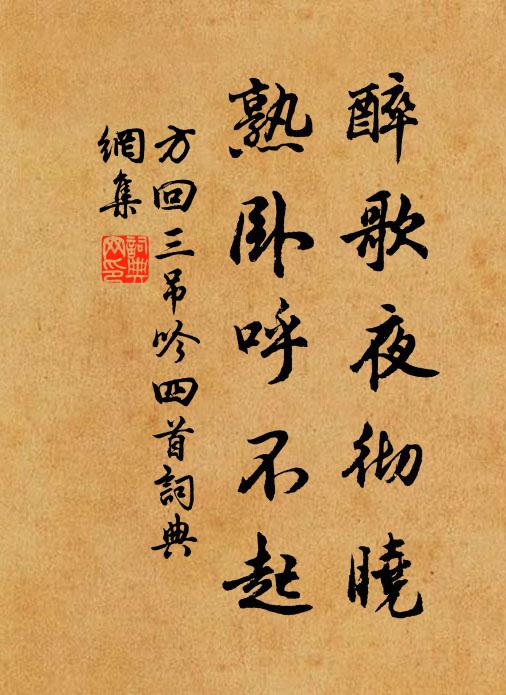 醉歌夜彻曉
熟卧呼不起
方回三吊吟四首詞典
網集
詞典网印